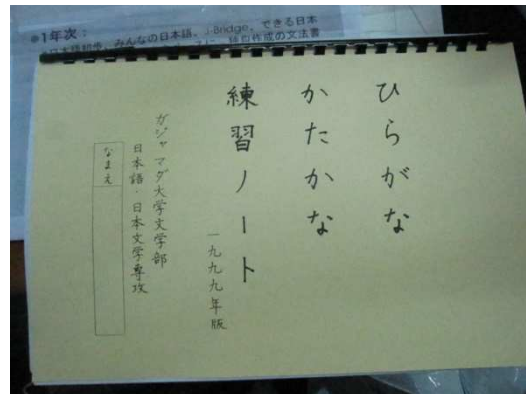 ●1年次：
日本語初歩、みんなの日本語、J-Bridge、できる日本
独自作成の文法書
ひらがな
かたかな
練習ノート
一九九九年版
ガジャ マダ大学文学部
日本語・日本文学専攻
なまえ